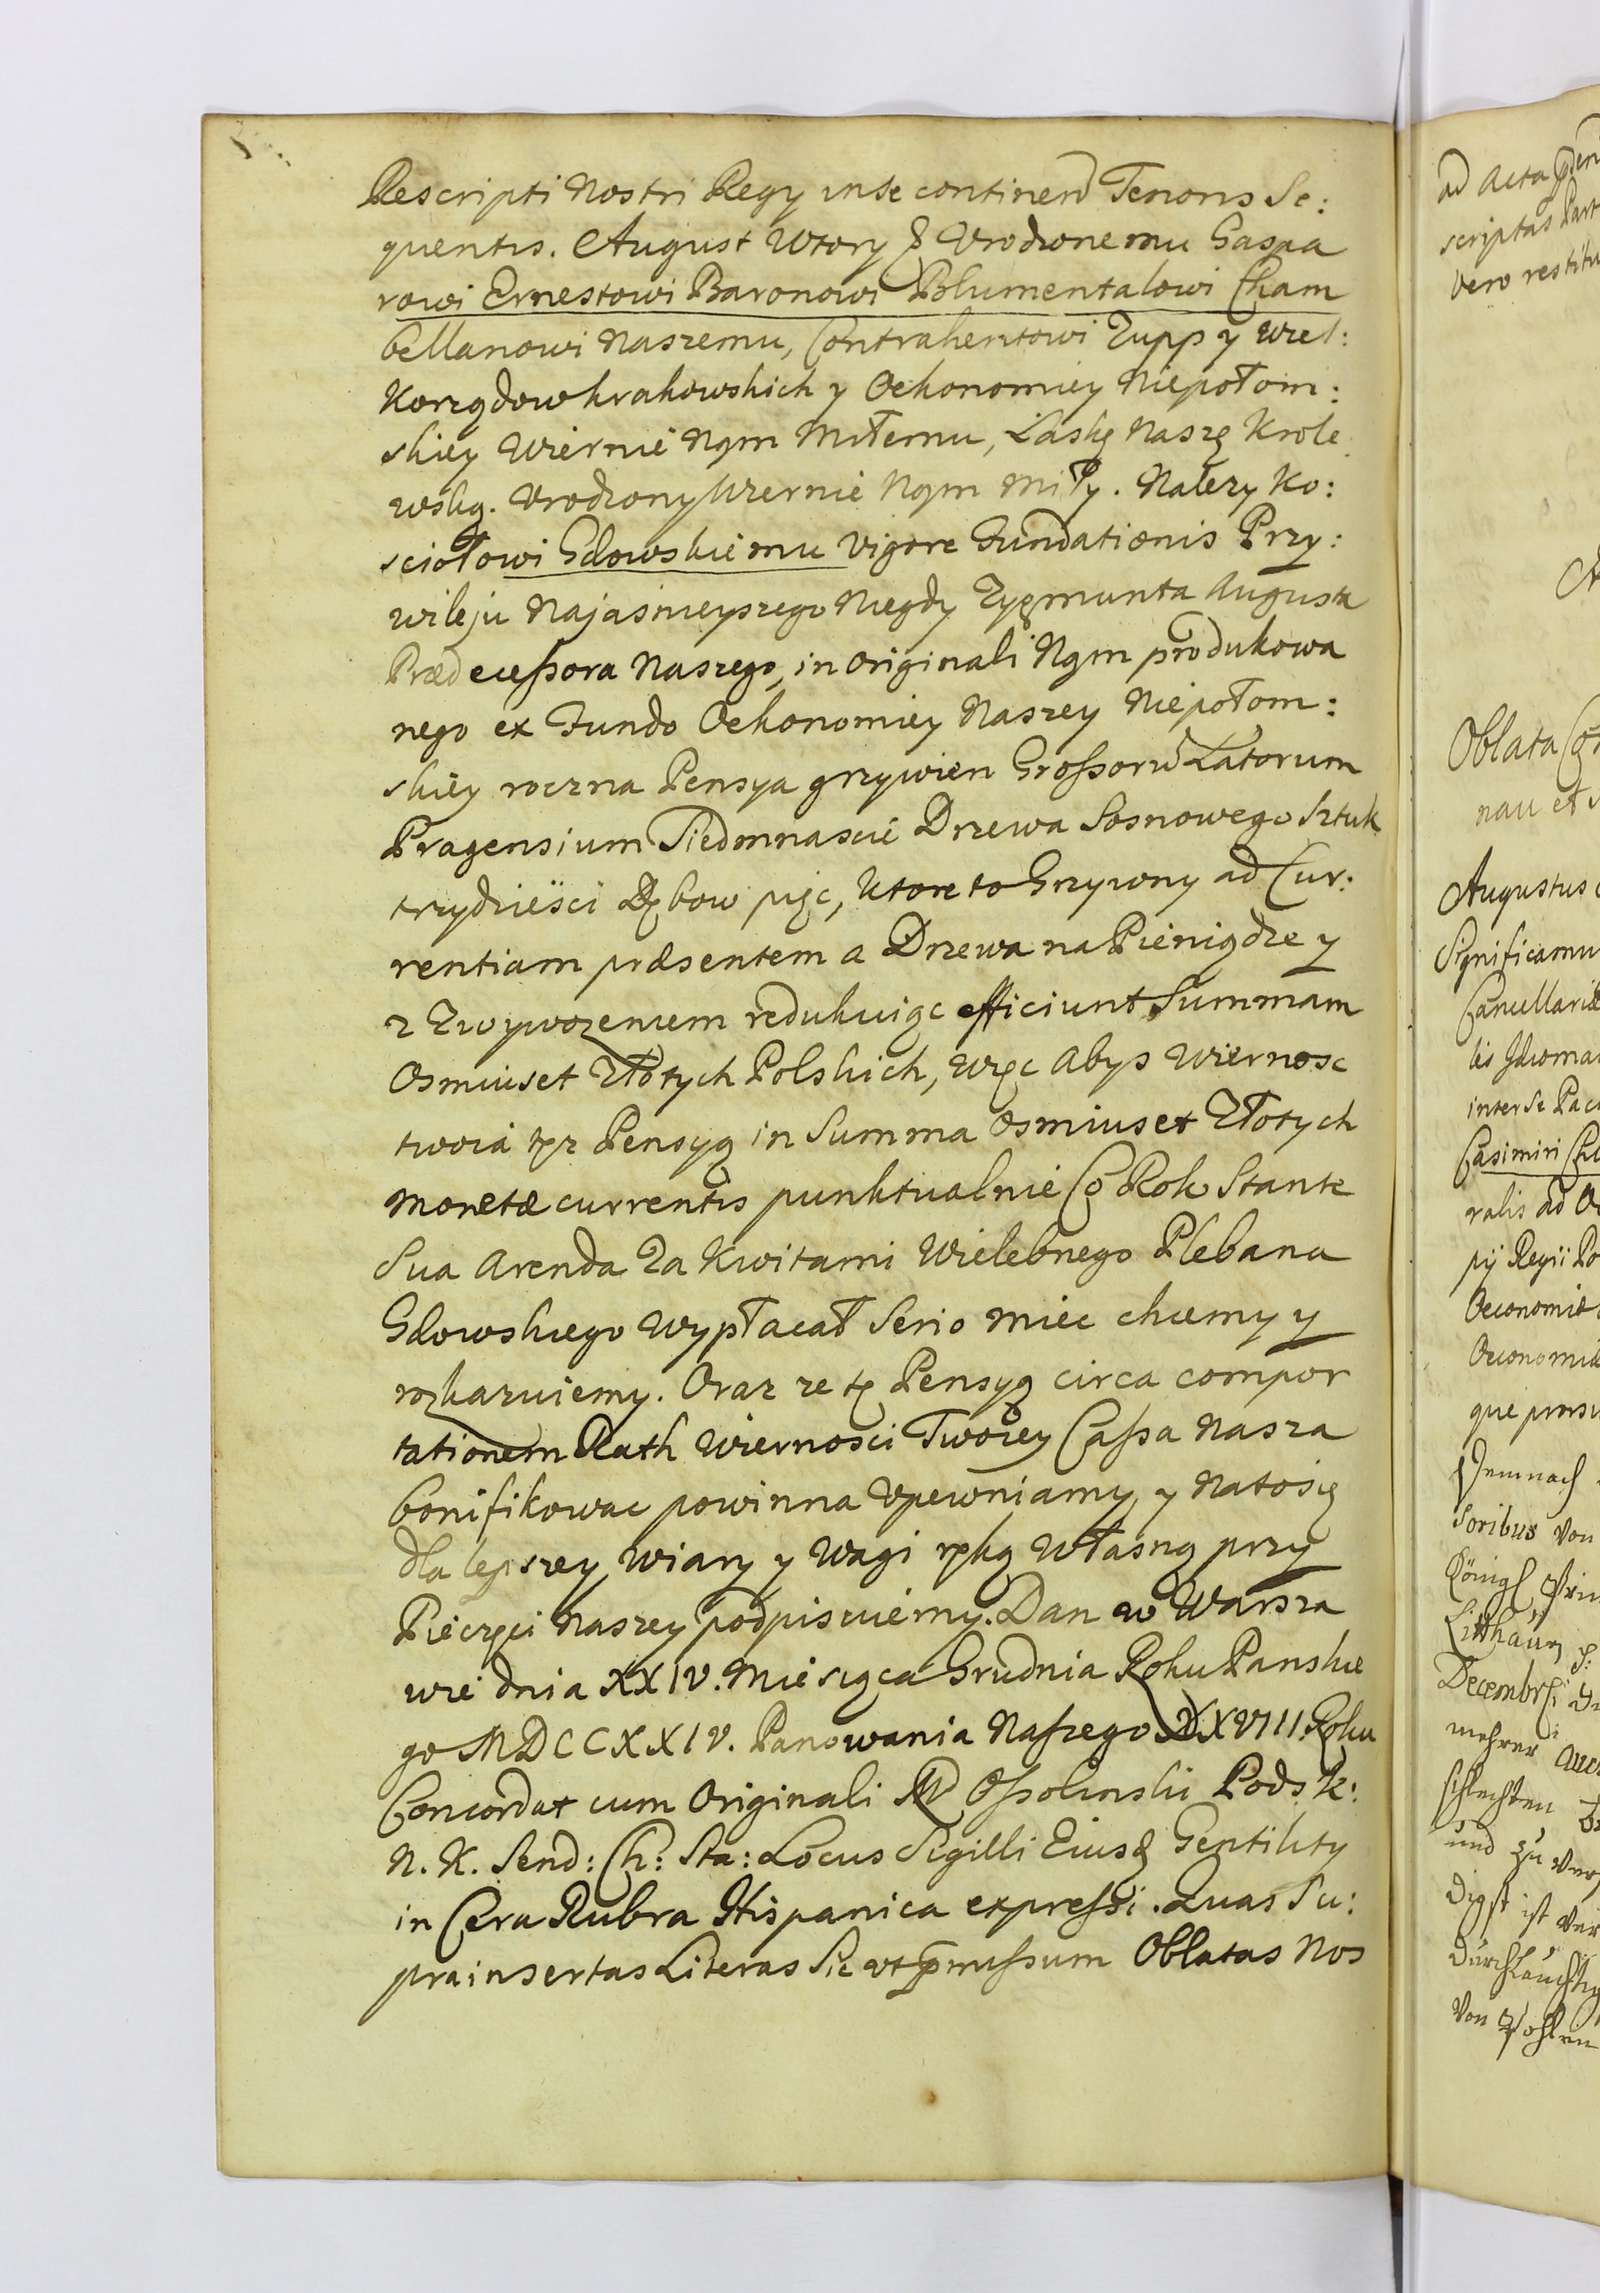 Rescripti Nostri Regy inse continen Tenoris Se:
quentis. August Wtory & Vrodzonemu Gaspa
rowi Ernestowi Baronowi Blumentalowi Cham
bellanowi Naszemu, Contrahentowi Zupp y Wiel:
Korządow krakowskich y Oekonomiey Niepołom:
skiey Wiernie Nąm Miłemu, Łaskę Naszę Krole
wską. Vrodzony Wiernie Nąm Miły. Nalezy Ko:
sciołowi Gdowskiemu Vigore Fundationis Przy:
wileju Najasnieyszego Niegdy Zygmunta Augusta
Prædecessora Naszego, in Originali Nąm produkowa
nego ex Fundo Oekonomiey Naszey Niepołom:
skiey roczna Pensya grzywien Grossorũ Latorum
Pragensium Siedmnascie Drzewa Sosnowego Sztuk
trzydziesci Dębow pięc, Ktore to Grzywny ad Cur:
rentiam præsentem a Drzewa na Pieniądze y
z Zwywozeniem redukuiąc efficiunt Summam
Osmiuset Złotych Polskich, Więc Abys Wiernosc
twoia tęz Pensyą in Summa Osmiuset Złotych
Monetæ currentis punktualnie Co Rok Stante
Sua Arenda Za Kwitami Wielebnego Plebana
Gdowskiego Wypłacał Serio miec chcemy y
rozkazuiemy. Oraz ze tę Pensyą circa compor
tationem Rath Wiernosci Twoiey Cassa Nasza
bonifikowac powinna Vpewniamy, y Natosię
dla lepszey Wiary y Wagi ręką Własną przy
Pieczęci Naszey podpisuiemy. Dan w Warsza
wie dnia XXIV. Miesiąca Grudnia Roku Panskie
go MDCCXXIV. Panowania Naszego XXVIII. Roku
Concordat cum Originali M Ossolinski Pods. K:
N. K. Send: Ch: Sta: Locus Sigilli Eiusd Gentility
in Cera Rubra Hispanica expressi. Quas Su:
prainsertas Literas Sic vt pmissum Oblatas Nos
ad Acta
scriptas
vero restitu
Oblata
nau et
Augustus
Significamu
Cancellariæ
inter Se
Casimiri
ralis ad
pij Regii Po
Oeconomiæ
Oeconomi
que
Demnach
Soribus von
Königl
Litthaün
Decembris
mehrer
schlechten
und zu
digst ist
von